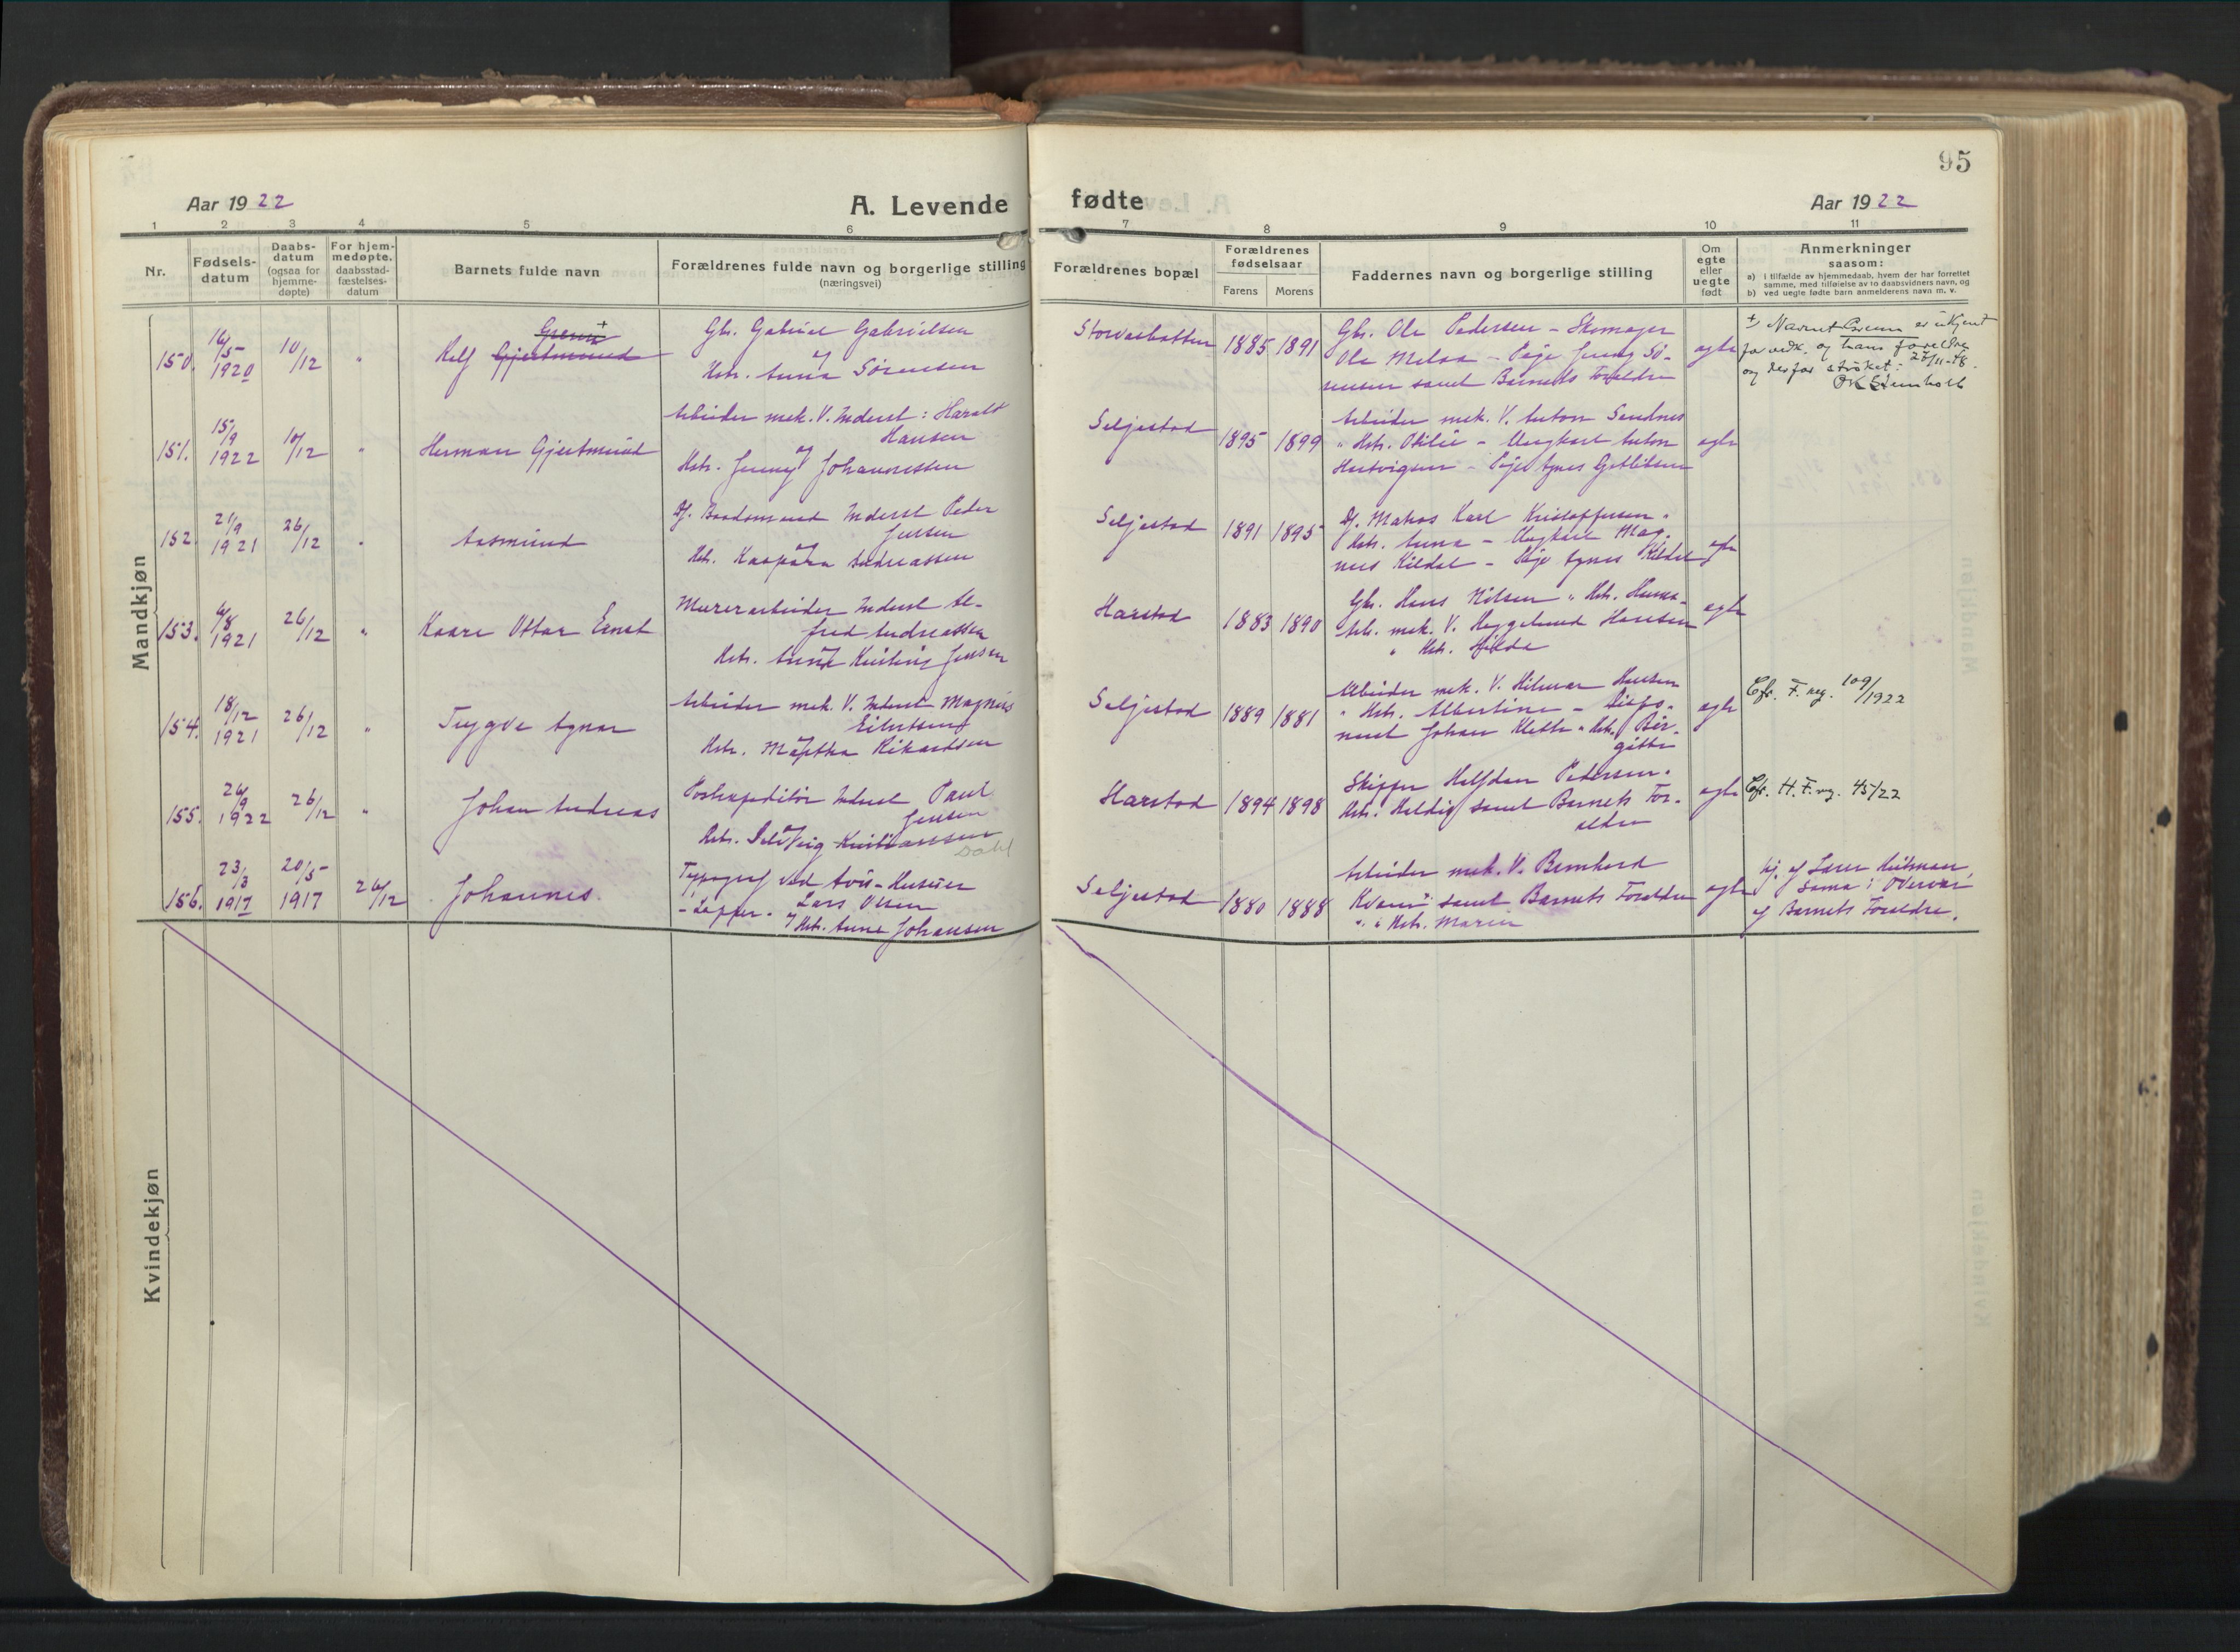 95
Aar 1922
A. Levende
fødte
Aar 1922
1 2 3 4 5 6 7 8 9 10 11
Nr.
Fødsels-
datum
Daabs-
datum
(ogsaa for
hjemme-
døpte)
For hjem-
medøpte.
daabsstad-
fæstelses-
datum
Barnets fulde navn
Forældrenes fulde navn og borgerlige stilling
(næringsvei)
Forældrenes bopæl
Forældrenes
fødselsaar
Farens Morens
Faddernes navn og borgerlige stilling
Om
egte
eller
uegte
født
Anmerkninger
saasom:
a) i tilfælde av hjemmedaab, hvem der har forrettet
samme, med tilføielse av to daabsvidners navn, og
b) ved uegte fødte barn anmelderens navn m. v.
Mandkjøn
150. 16/5 1920 10/12 "
Gjertmund
Gbr. Gabriel Gabrielsen
og
Hstr. Anna Sørensen
1885 1891
Gbr. Ole Pedersen - Skomager
Ole Meloa - Pige Jenny Sø-
rensen samt Barnets Forældre
ægte
+) Navnet er ukjent
for vedk. og hans foreldre
og derfor strøket: 27/11-48.
151. 15/9 1922 10/12 "
Herman Gjertmund
Arbeider mek. V. Inderst: Harald
Hansen
og
Hstr. Jenny Johannessen
Seljestad
1895 1899
Arbeider mek. V. Anton Sandnes
" Hstr. Otilie - Ungkarl Anton
Hartvigsen - Pige Agnes Gotlibsen
ægte
152. 21/9 1921 26/12 "
Aasmund
Df. Baadsmand Inderst Peder
Jensen
og
Hstr. Kaspara Andreassen
Seljestad
1891 1895
Df. Matros Karl Kristoffersen "
Hstr. Anna - Ungkarl Mag-
nus Kildal - Pige Agnes Kildal
ægte
153. 6/8 1921 26/12 "
Kaare Ottar Ernst
Murerarbeider Inderst Al-
fred Andreassen
og
Hstr. Anna Kristine Jensen
Harstad
1883 1890
Gbr. Hans Nilsen " Hstr. Hanna -
Arb. mek. V. Hansen
" Hstr. Hilda
ægte
154. 18/12 1921 26/12 "
Trygve Agnar
Arbeider mek. V. Inderst Magnus
Eilertsen
og
Hstr. Martha Rikardsen
Seljestad
1889 1881
Arbeider mek. V. Hilmar Hansen
" Hstr. Albertine -
Johan Klette " Hstr. Bir-
gitte
ægte
Cfr. F. reg. 109/1922
155. 26/9 1922 26/12 "
Johan Andreas
Postexpeditør Inderst Paul
Jensen
og
Hstr. Solveig Kristiansen
Dahl
Harstad
1894 1898
Skipper Halfdan Pedersen "
Hstr. samt Barnets For-
ældre
ægte
Cfr. H. F. reg. 45/22
156. 23/3 1917 20/5 1917 26/12
Johannes.
Typograf ved Avis-Huseier
Lars Olsen
og Hstr. Anne Johansen
Seljestad
1880 1888
Arbeider mek. V. Bernhard
samt Barnets Forældre
" " Hstr. Marie
ægte
hj. af Lærer
Sama i
af Barnets Forældre.
Kvindekjøn